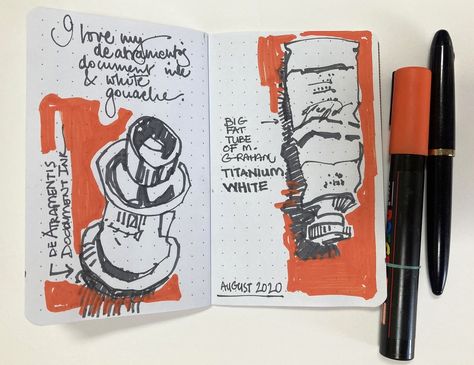 I love my
deatraments
document ink
& white
gouache.
DE ATRAMENTIS
DOCUMENT INK
BIG
FAT
TUBE
OF M.
GRAHAM
TITANIUM
WHITE
AUGUST 2020